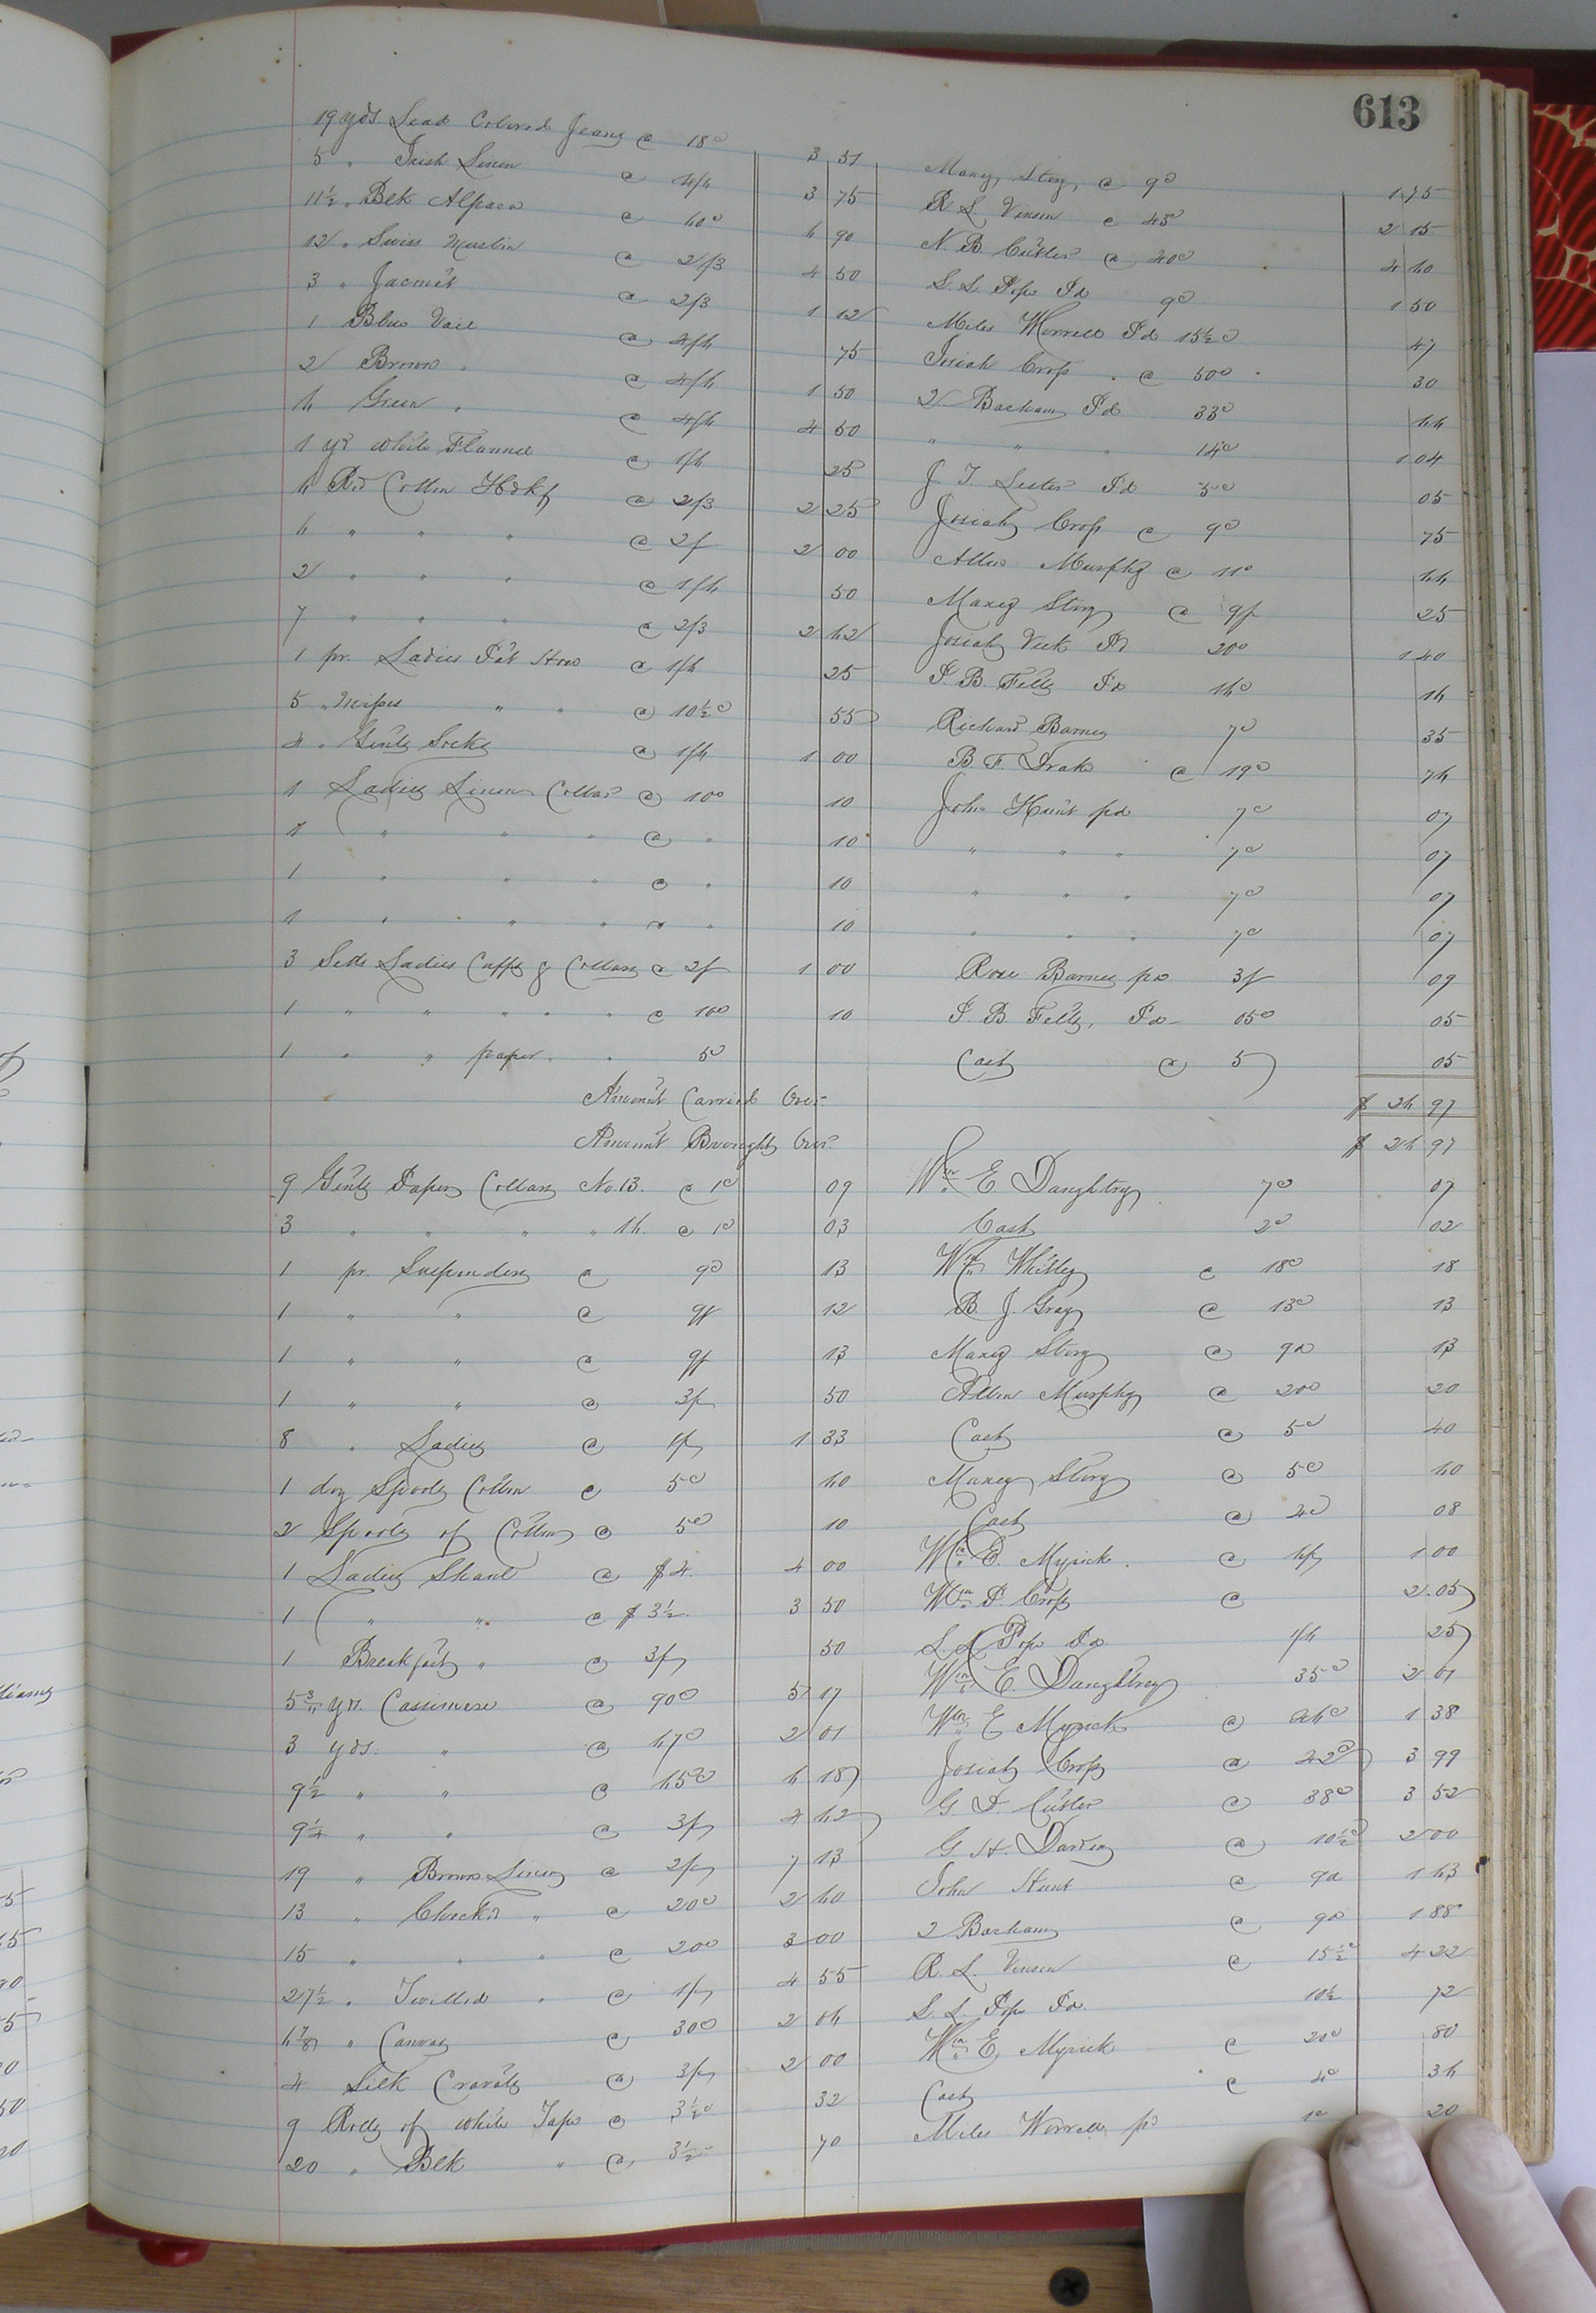 613
19 yds. Lead Colored Jeans @ 18c 3 51 Maney Story, @ 9c 1.75
5 " Irish Linen @ 4/6 3 75 R. L. Vinson @ 43c 2 15
11½ " Blk Alpaca @ 60c 6 90 N. B. Cutler @ 40c 4 60
12 " Swiss Muslin @ 2/3 4 50 S. S. Pope Pd 9c 1 50
3 " Jaconet @ 2/3 1 12 Miles Worrell Pd 15½c 47
1 Blue Vail @ 4/6 75 Josiah Crop " @ 50c 30
2 Brown " @ 4/6 1 50 2 Barham Pd 33c 66
6 Green " @ 4/6 4 50 " " " 14c 1 04
1 yd white Flannel @ 1/6 25 J. T. Lester Pd 5c 05
6 Rd Cotton Hdkf @ 2/3 2 25 Josiah Crop @ 9c 75
6 " " " @ 2/ 2 00 Allen Murphy @ 11c 66
2 " " " @ 1/6 50 Maney Story @ 9/ 25
7 " " " @ 2/3 2 62 Josiah Vick Pd 20c 1 40
1 pr. Ladies Pat Hose @ 1/6 25 P. B. Felts Pd 16c 16
5 " Misses " " @ 10½c 55 Richard Barnes 7c 35
4 " Gents Socks @ 1/6 1 00 B. F. Drake @ 19c 76
1 Ladies Linen Collar @ 10c 10 John Hunt pd 7c 07
1 " " " @ " 10 " " " 7c 07
1 " " " @ " 10 " " " 7c 07
1 " " " @ " 10 " " " 7c 07
3 Setts Ladies Cuffs & Collars @ 2/ 1 00 Rose Barnes pd 3/ 09
1 " " " " " @ 10c 10 P. B. Felts, Pd 05c 05
1 " " paper " " 5c Cash @ 5 05
Amount Carried Over $ 26 97
Amount Brought Over $ 26 97
9 Gents Paper Collars No. 13. @ 1c 09 Wm. E. Daughtrey 7c 07
3 " " " " 16. @ 1c 03 Cash 2c 02
1 pr. Suspenders @ 9c 13 Wm. Whitley @ 18c 18
1 " " @ 9/ 12 B. J. Gray @ 13c 13
1 " " @ 9/ 13 Maney Story @ 9c 13
1 " " @ 3/ 50 Allen Murphy @ 20c 20
8 " Ladies @ 1/ 1 33 Cash @ 5c 40
1 doz Spools Cotton @ 5c 60 Maney Story @ 5c 60
2 Spools of Cotton @ 5c 10 Cash @ 4c 08
1 Ladies Shawl @ $4. 4 00 Wm. E. Myrick. @ 6/ 1 00
1 " " @ $3½. 3 50 Wm. P. Crop @ 2.05
1 Breakfast " @ 3/ 50 S. S. Pope Pd. 1/6 25
yds. Cassimere @ 90c 5 17 Wm. E. Daughtrey 35c 2 01
3 yds. " @ 67c 2 01 Wm. E Myrick @ 46c 1 38
9½ " " @ 65c 6 18 Josiah Crop @ 42c 3 99
9¼ " " @ 3/ 4 62 G. D. Cutler @ 38c 3 52
19 " Brown Linen @ 2/ 7 13 G. H. Darden @ 10½c 2 00
13 " Check'd " @ 20c 2 60 John Hunt @ 9c 1 63
15 " " " @ 20c 3 00 2 Barham @ 9c 1 88
27½ " Twilled " @ 1/ 4 55 R. L. Vinson @ 15½c 4 22
6⅞ " Canvas @ 30c 2 06 S. S. Pope Pd. 10½ 72
4 Silk Cravats @ 3/ 2 00 Wm. E. Myrick @ 20c 80
9 Rolls of white Tape @ 3½c 32 Cash @ 4c 36
20 " Blk " @ 3½ 70 Miles Worrell pd 1c 20